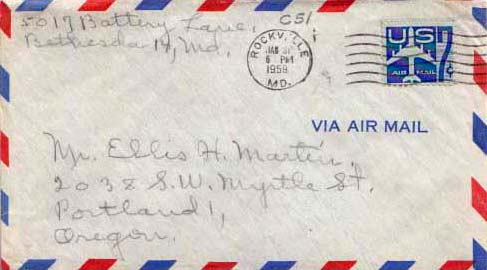 5017 Battery Lane,
Bethesda 14, Md.
C51
ROCKVILLE
6 PM
1958
MD.
US
AIR MAIL
7¢
VIA AIR MAIL
Mr. Ellis H. Martin,
2038 S.W. Myrtle St.
Portland 1,
Oregon.